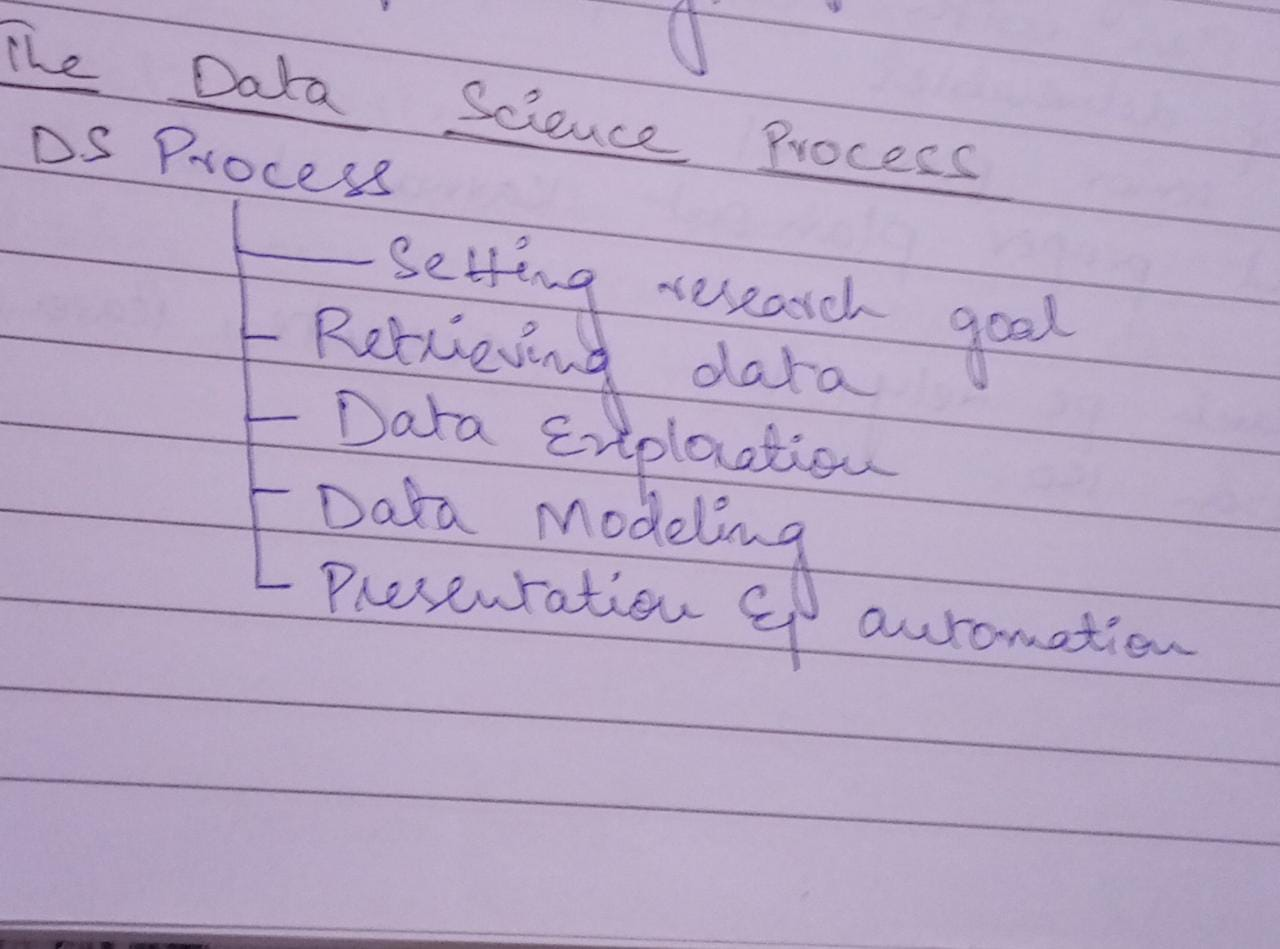 The Data Science Process
DS Process
Setting research goal
Retrieving data
Data Exploration
Data Modeling
Presentation & automation